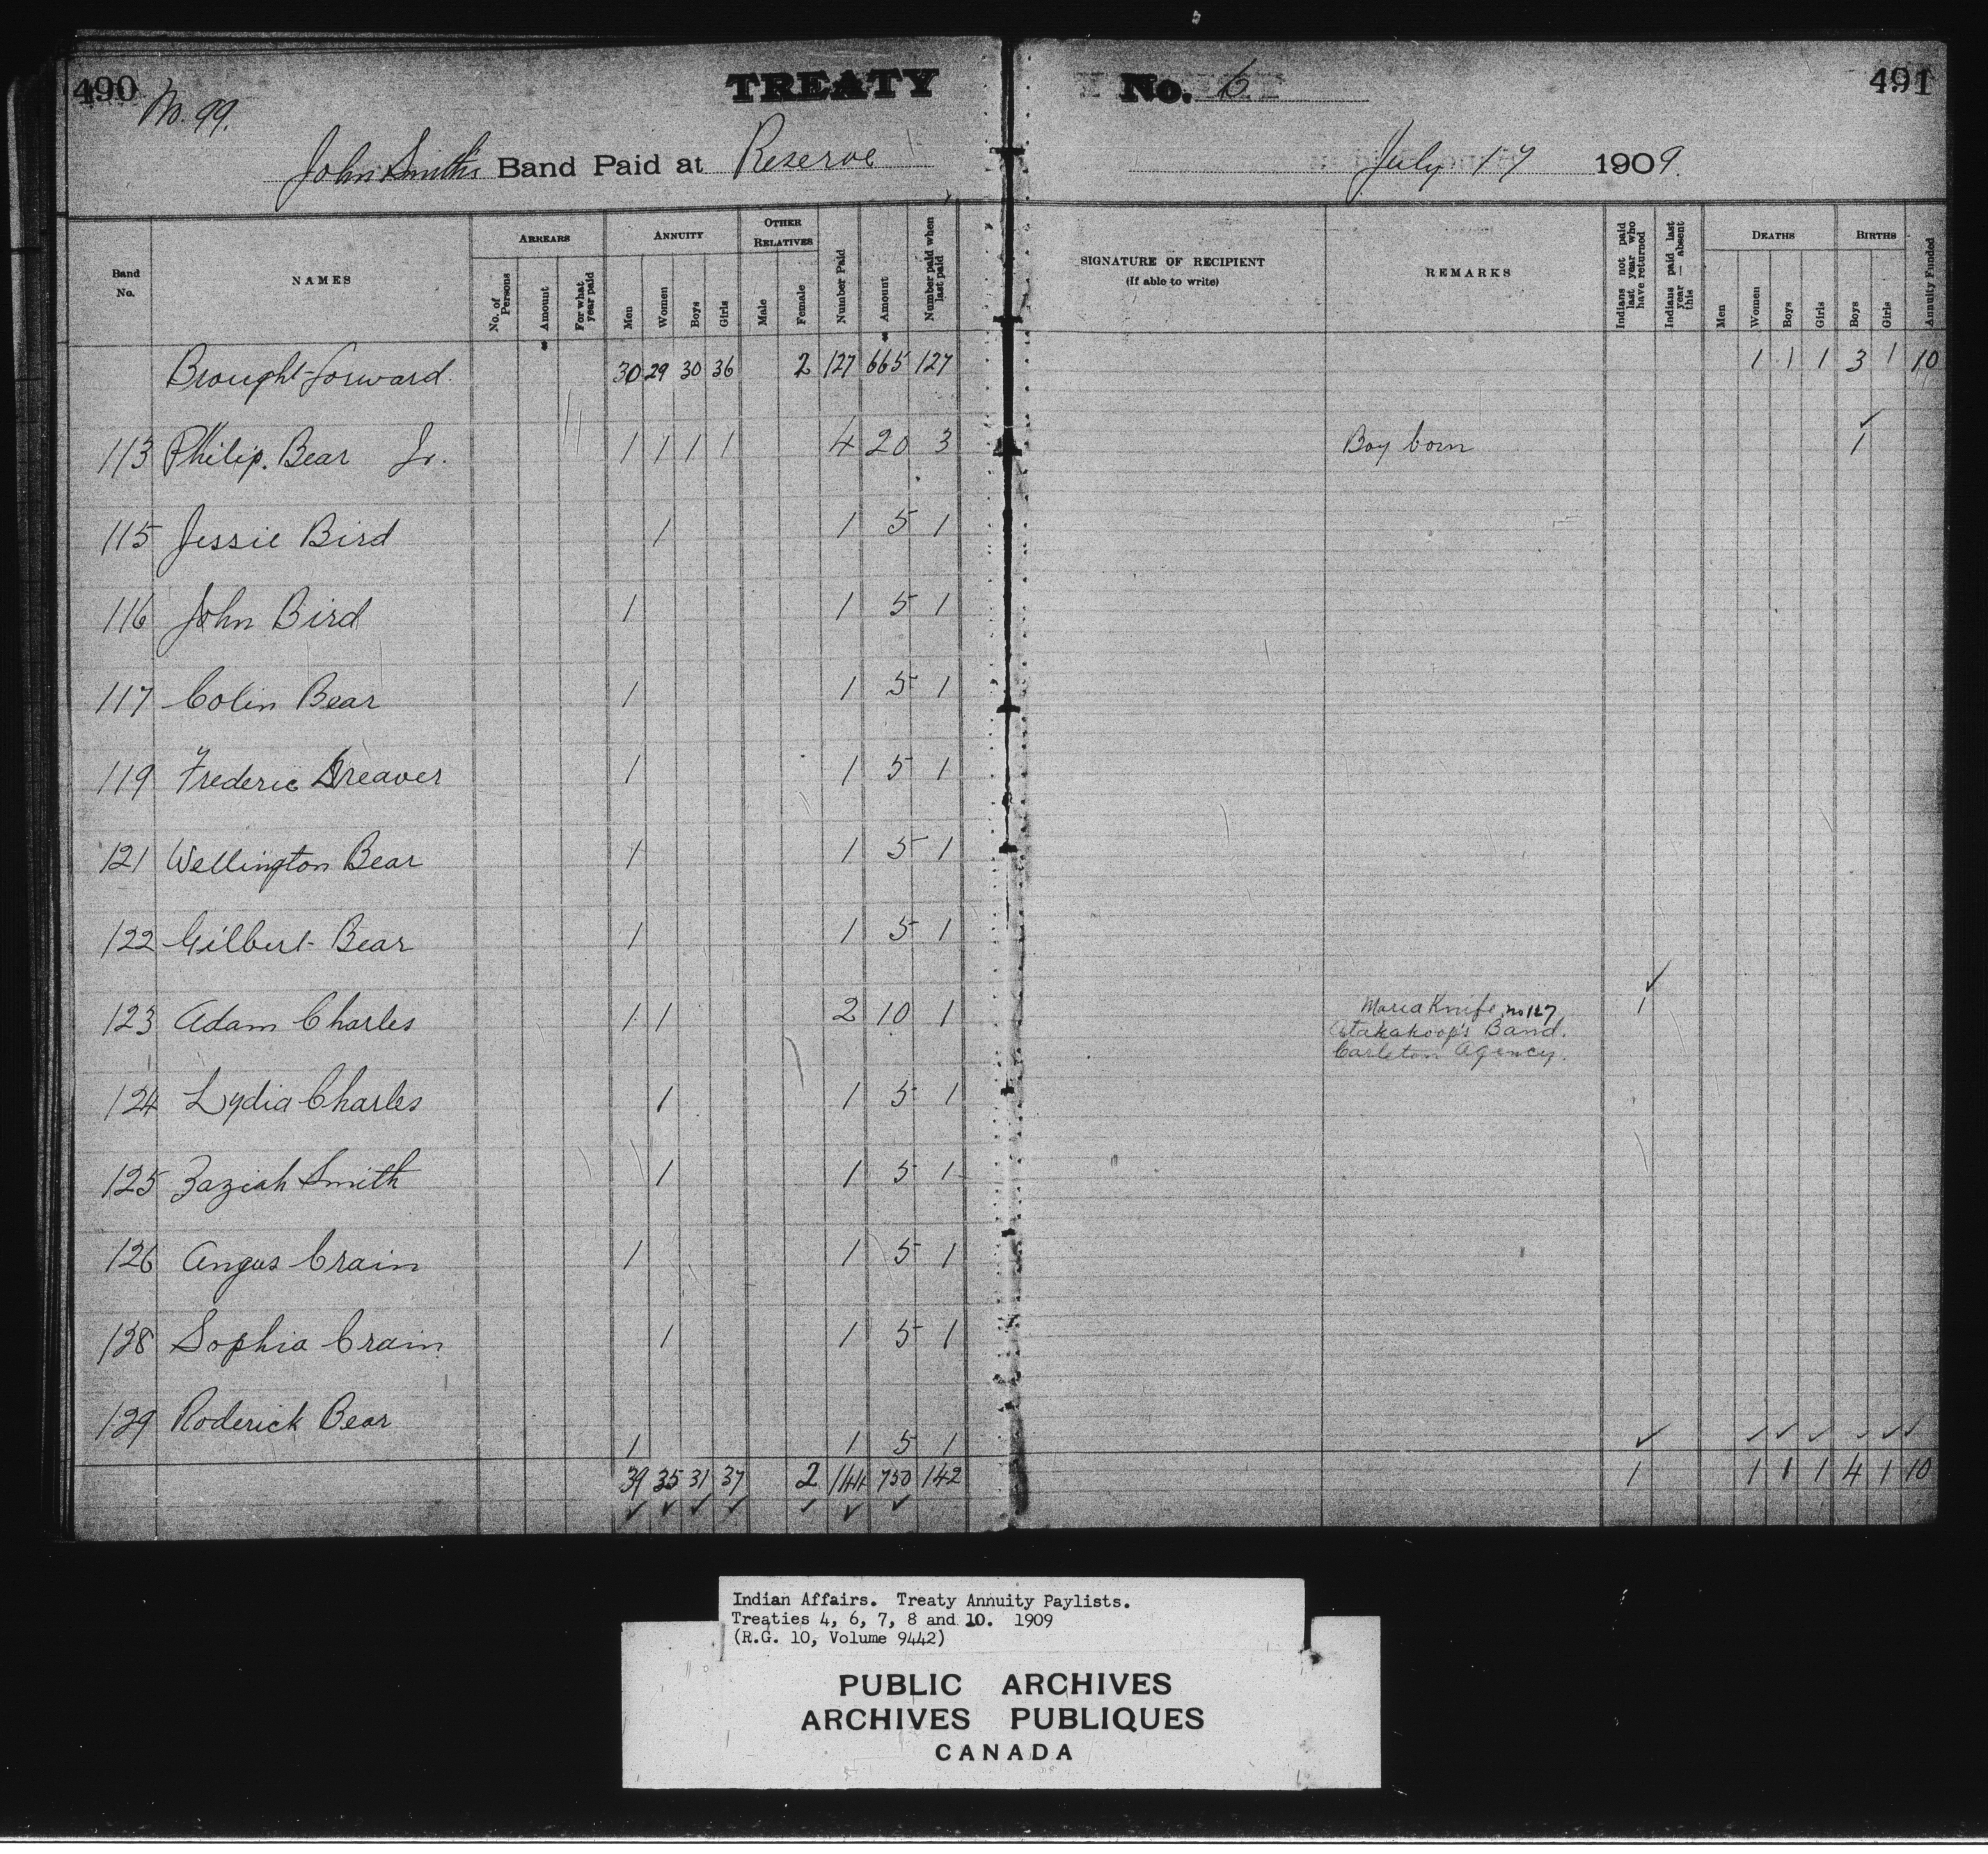 490 TREATY No. 6 491
No. 99.
John Smith's Band Paid at Reserve July 17 1909.
Band No. NAMES ARREARS No. of Persons Amount For what year paid ANNUITY Men Women Boys Girls OTHER RELATIVES Male Female Number Paid Amount Number paid when last paid SIGNATURE OF RECIPIENT (If able to write) REMARKS Indians not paid last year who have returned Indians paid last year — absent this DEATHS Men Women Boys Girls BIRTHS Boys Girls Annuity Funded
Brought forward 30 29 30 36 2 127 665 127 1 1 1 3 1 10
113 Philip. Bear Jr. 1 1 1 1 4 20 3 Boy born 1
115 Jessie Bird 1 1 5 1
116 John Bird 1 1 5 1
117 Colin Bear 1 1 5 1
119 Frederic Dreaver 1 1 5 1
121 Wellington Bear 1 1 5 1
122 Gilbert Bear 1 1 5 1
123 Adam Charles 1 1 2 10 1 Maria Knife, no 127 1
Atakakoop's Band.
Carleton Agency.
124 Lydia Charles 1 1 5 1
125 Zaziah Smith 1 1 5 1
126 Angus Crain 1 1 5 1
128 Sophia Crain 1 1 5 1
129 Roderick Bear 1 1 5 1
39 35 31 37 2 144 750 142 1 1 1 1 4 1 10
Indian Affairs. Treaty Annuity Paylists.
Treaties 4, 6, 7, 8 and 10. 1909
(R.G. 10, Volume 9442)
PUBLIC ARCHIVES
ARCHIVES PUBLIQUES
CANADA